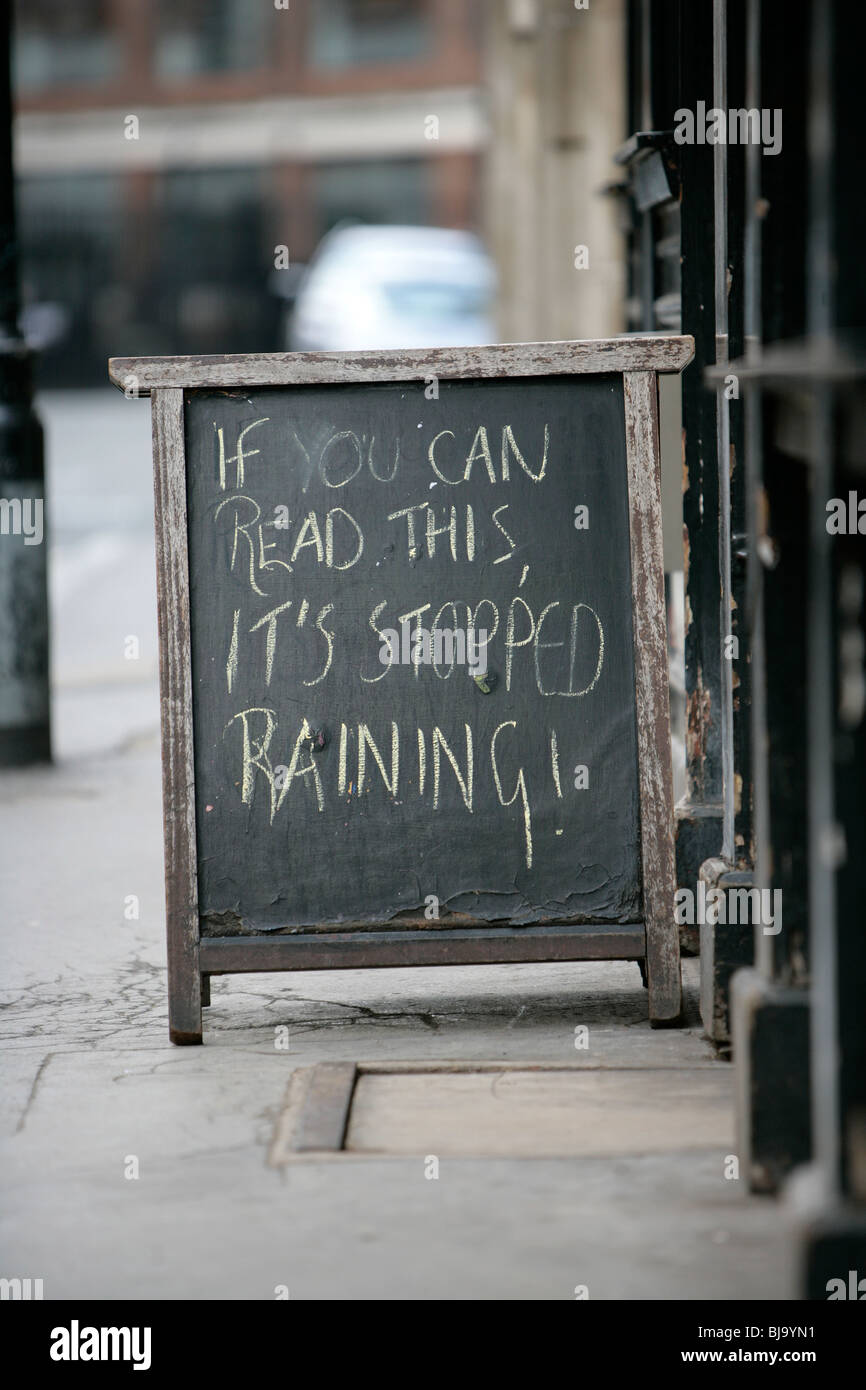 IF YOU CAN
READ THIS,
IT'S STOPP'ED
RAINING!
alamy
Image ID: BJ9YN1
www.alamy.com